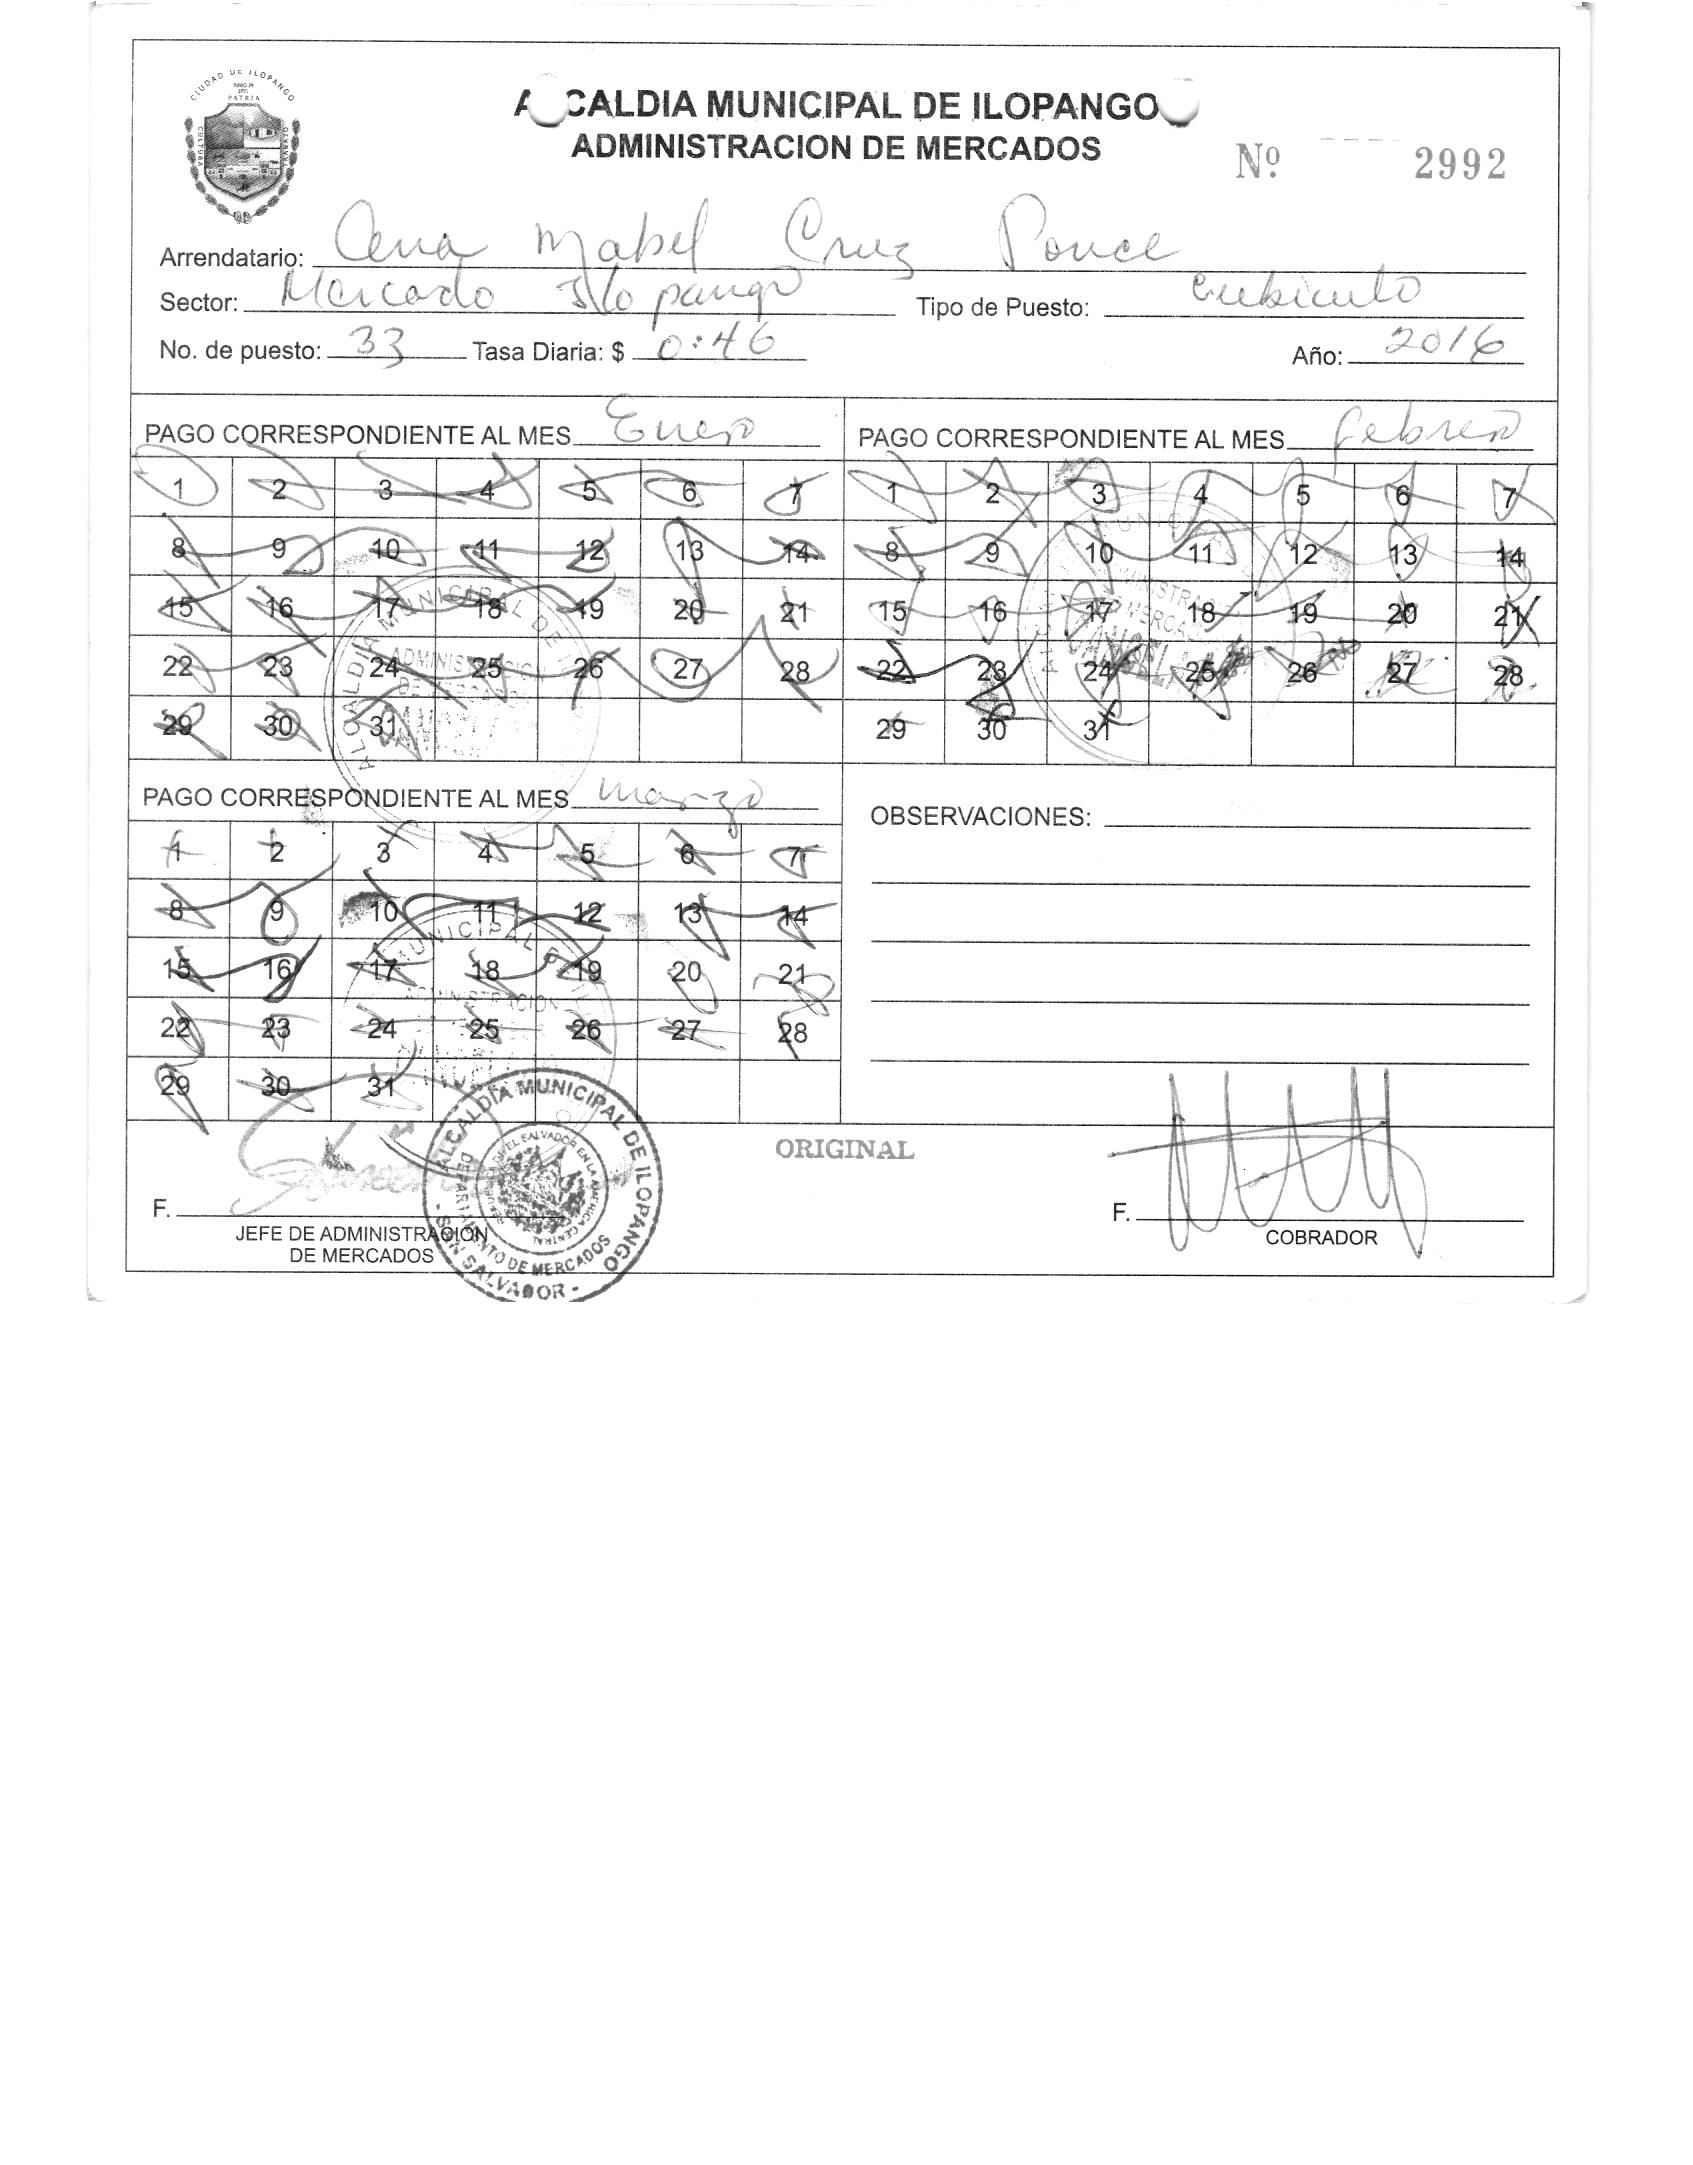 CIUDAD DE ILOPANGO
PATRIA
CULTURA
ALCALDIA MUNICIPAL DE ILOPANGO
ADMINISTRACION DE MERCADOS
Nº 2992
Arrendatario: Ana Mabel Cruz Ponce
Sector: Mercado Ilopango Tipo de Puesto: cubiculo
No. de puesto: 33 Tasa Diaria: $ 0:46 Año: 2016
PAGO CORRESPONDIENTE AL MES Enero
1 2 3 4 5 6 7
8 9 10 11 12 13 14
15 16 17 18 19 20 21
22 23 24 25 26 27 28
29 30 31
PAGO CORRESPONDIENTE AL MES febrero
1 2 3 4 5 6 7
8 9 10 11 12 13 14
15 16 17 18 19 20 21
22 23 24 25 26 27 28
29 30 31
PAGO CORRESPONDIENTE AL MES marzo
1 2 3 4 5 6 7
8 9 10 11 12 13 14
15 16 17 18 19 20 21
22 23 24 25 26 27 28
29 30 31
OBSERVACIONES:
ORIGINAL
F.
JEFE DE ADMINISTRACION
DE MERCADOS
ALCALDIA MUNICIPAL DE ILOPANGO
DEPARTAMENTO DE MERCADOS
- SAN SALVADOR -
F.
COBRADOR